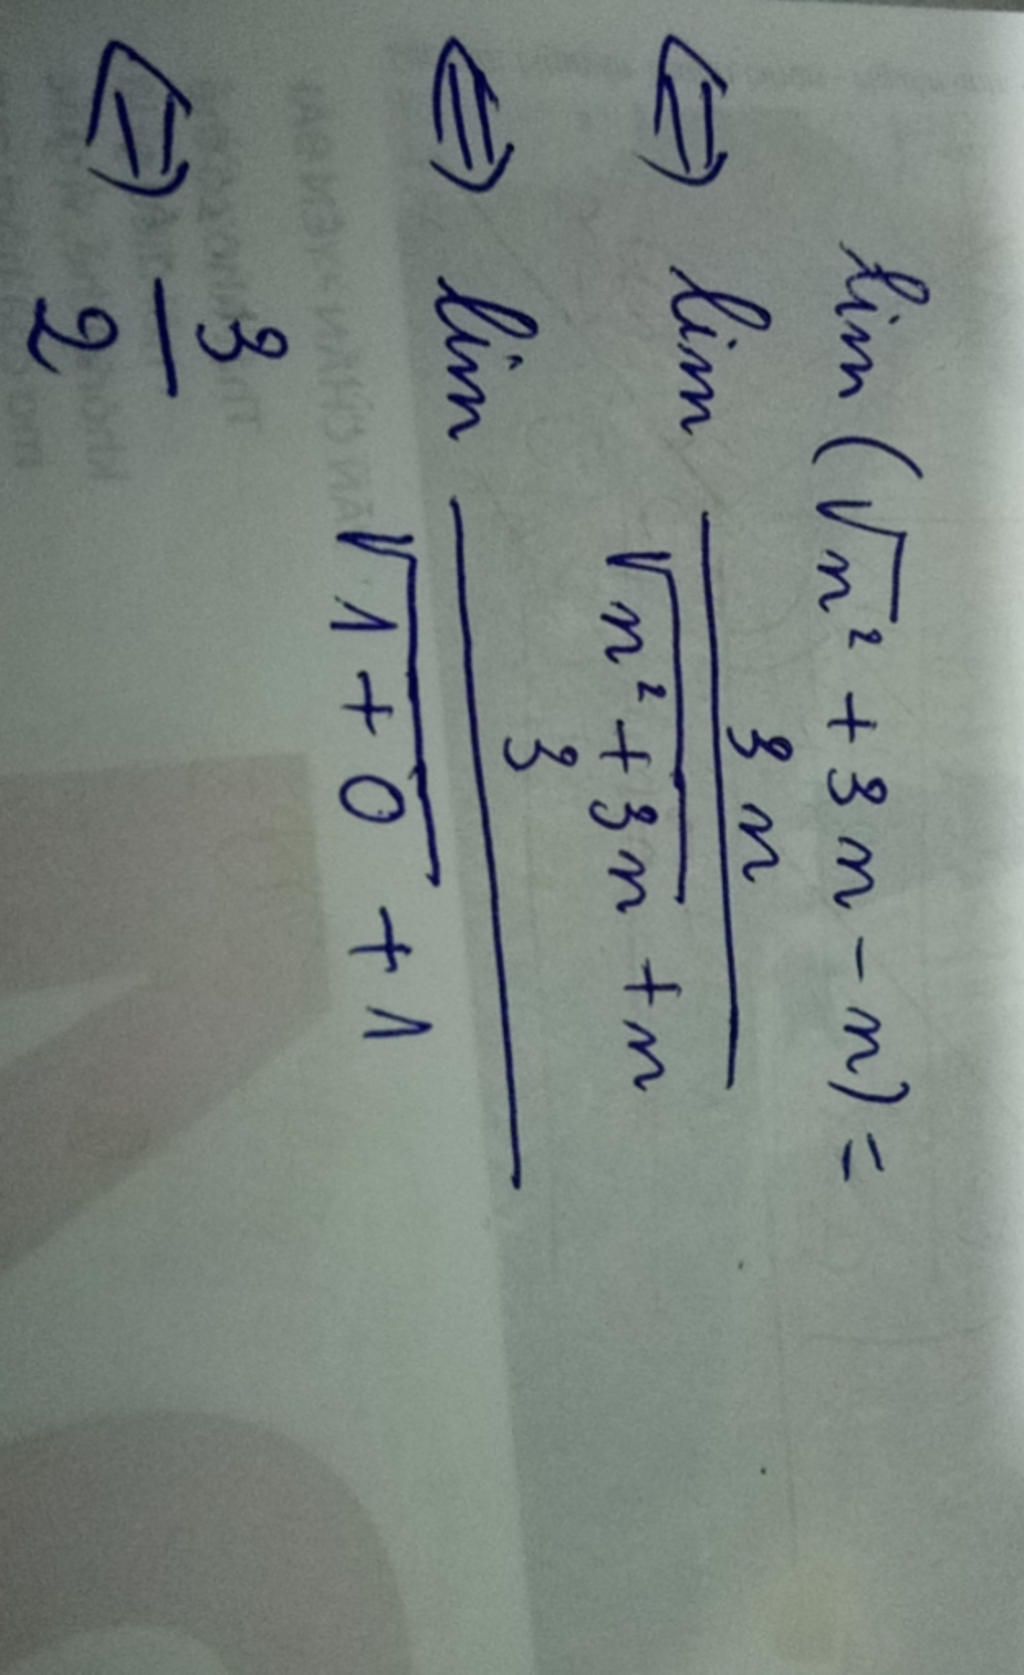 lim (√n² + 3n - n) =
⇔ lim 3n / √n² + 3n + n
⇔ lim 3 / √1 + 0 + 1
⇔ 3 / 2